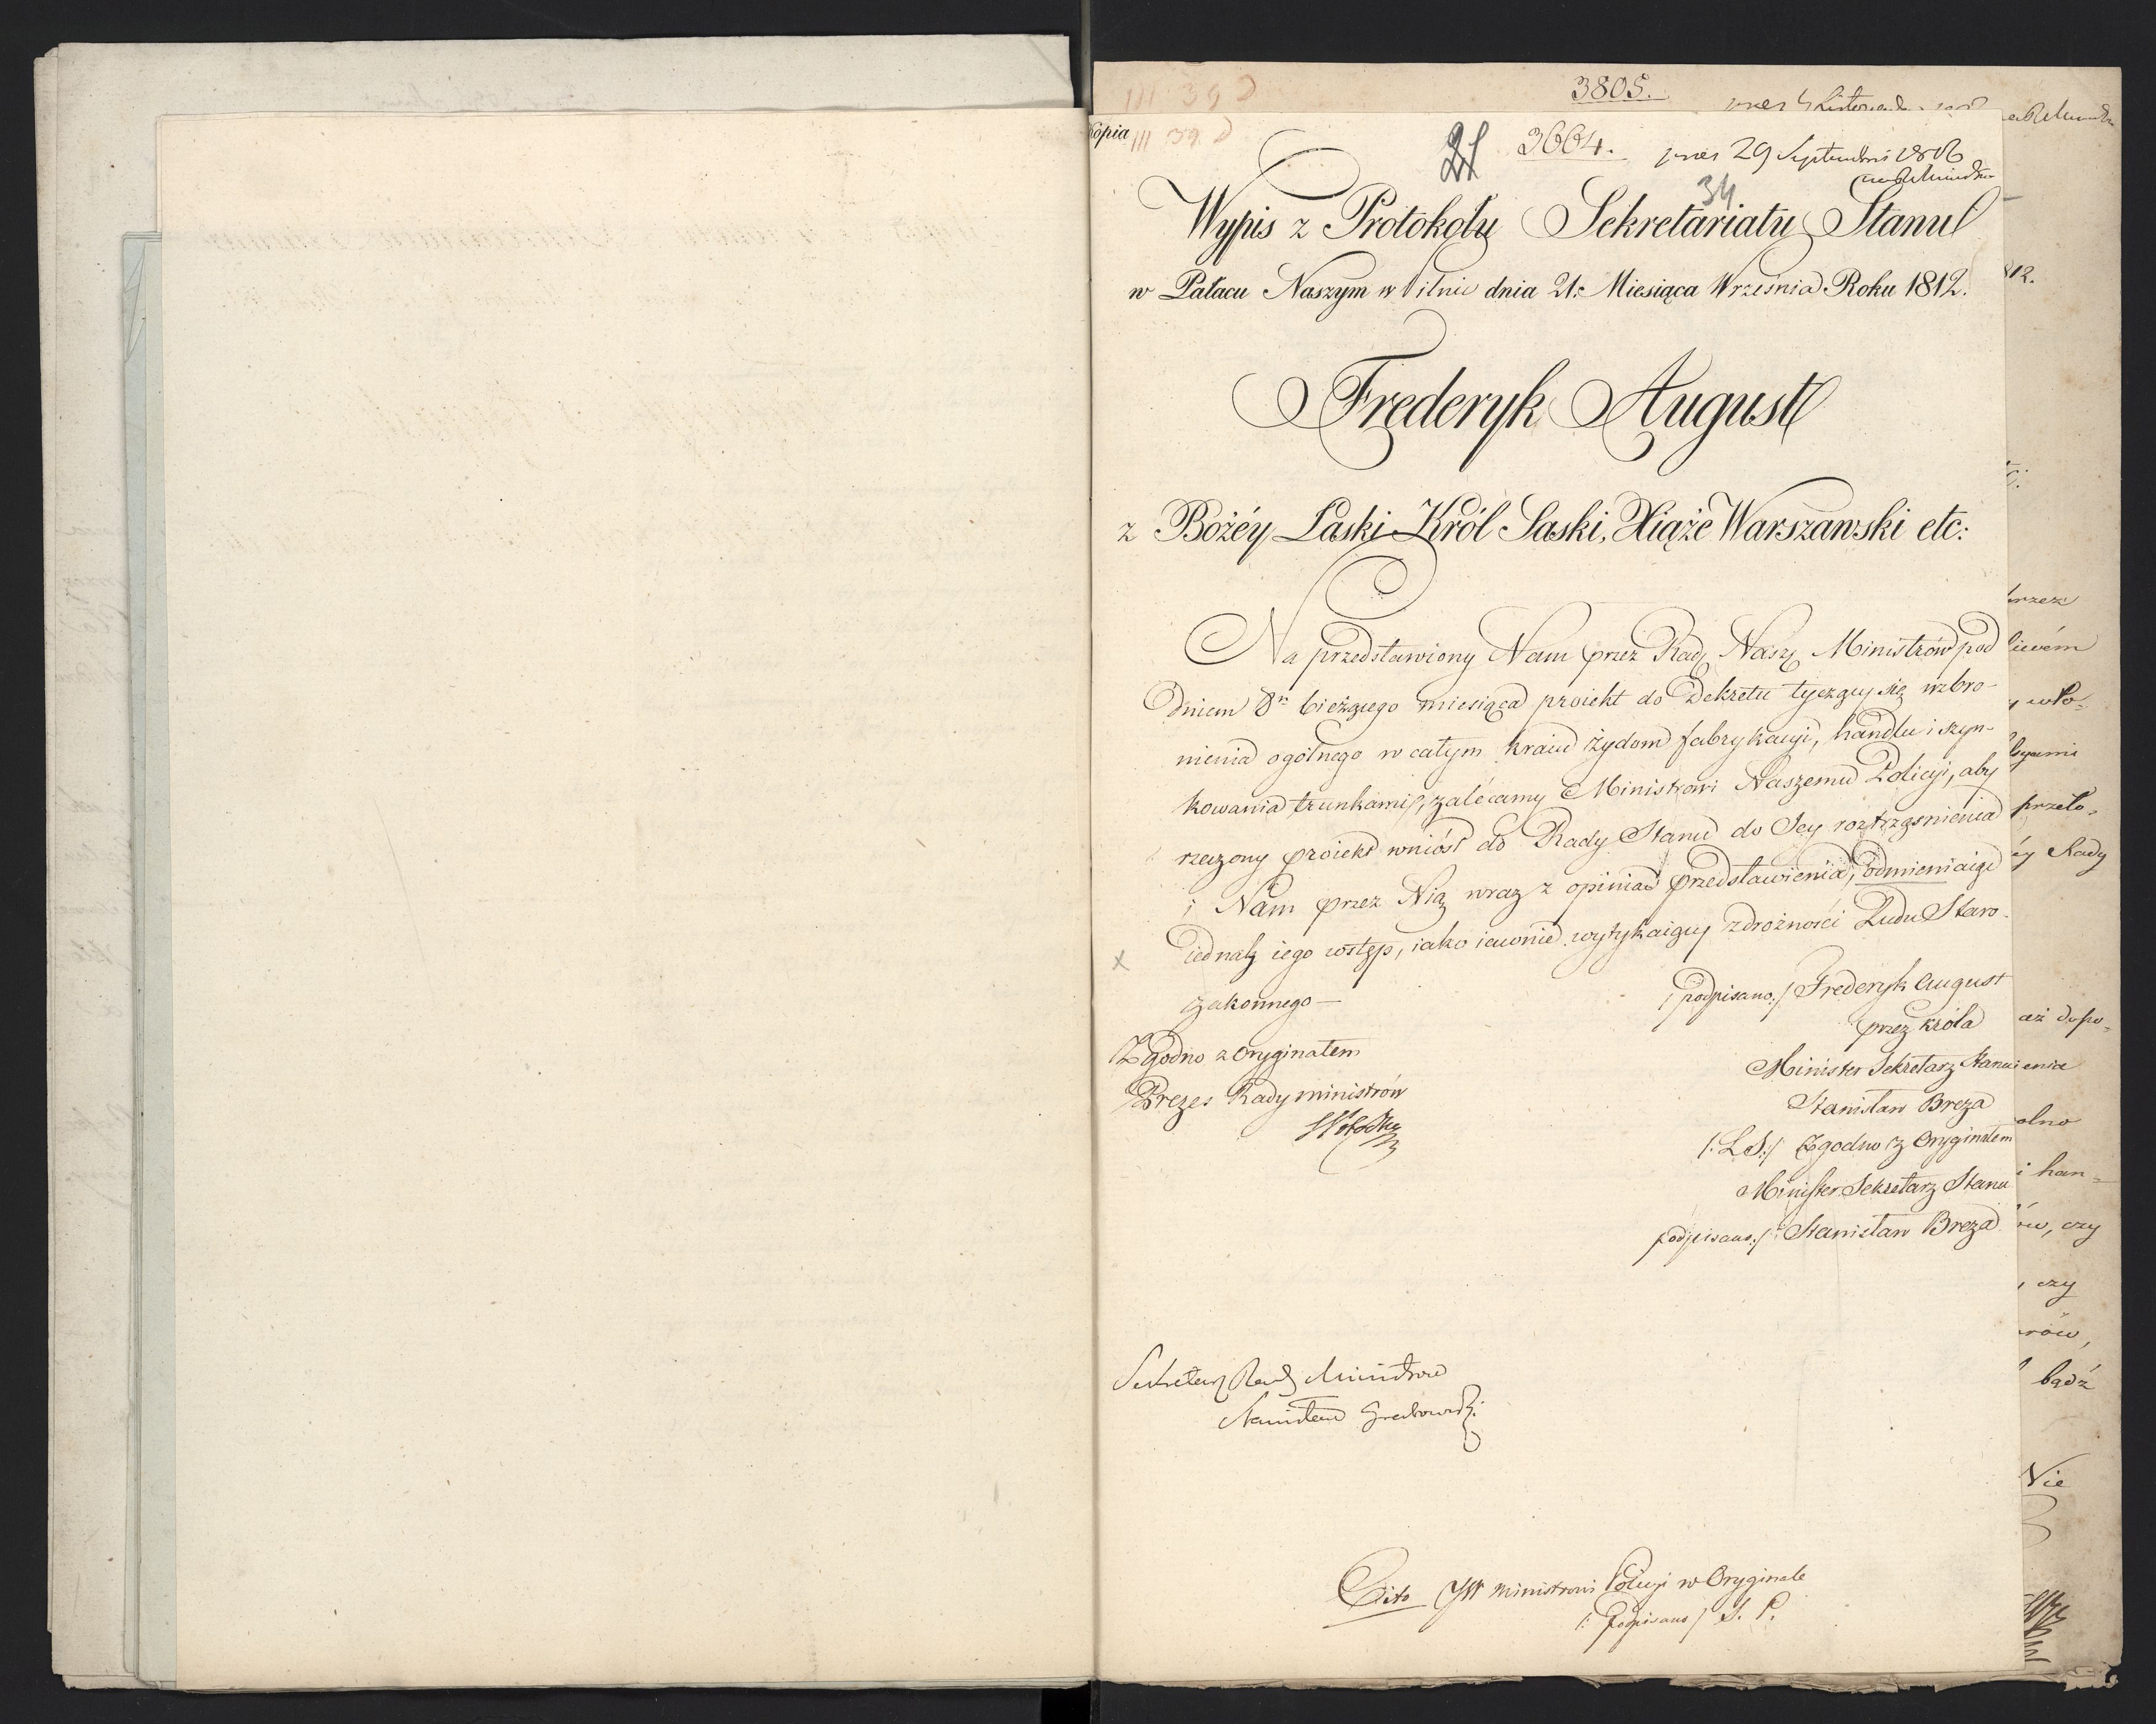 3805.
III 39 D
Kopia
III 39 D
21
3664.
34
praes 29 Septembris 1812
Wypis z Protokołu Sekretariatu Stanu
w Pałacu Naszym w Pilnic dnia 21. Miesiąca Września Roku 1812.
Frederyk August
z Bożéy Łaski Król Saski, Xiąże Warszawski etc:
Na przedstawiony Nam przez Radę Naszą Ministrów pod
Dniem 8m bieżącego miesiąca proiekt do Dekretu tyczący się wzbro-
nienia ogólnego w całym kraiu żydom fabrykacyi, handlu i szyn-
kowania trunkami, zalécamy Ministrowi Naszemu Policyi, aby
rzeczony proiekt wniósł do Rady Stanu do Jey roztrząśnienia
i Nam przez Nią wraz z opinią przedstawienia, odmieniaiąc
iednak iego wstęp, iako iawnie wytykaiący zdrożności Ludu Staro-
zakonnego —
/podpisano:/ Frederyk August
przez króla
Minister Sekretarz Stanu
Stanisław Breza
/:L.S:/ Zgodno z Oryginałem
Minister Sekretarz Stanu
podpisano:/ Stanisław Breza
Zgodno z Oryginałem
Prezes Rady ministrów
Sekretarz Rady Ministrów
Stanisław Grabowski
Cito JW Ministrowi Policyi w Oryginale
/: Podpisano / S. P.
812.
przez
liwém
y wło-
przeło-
éy Rady
aż dopo-
ienia
olno
i han-
ów, czy
, czy
rów,
bądź
Nie